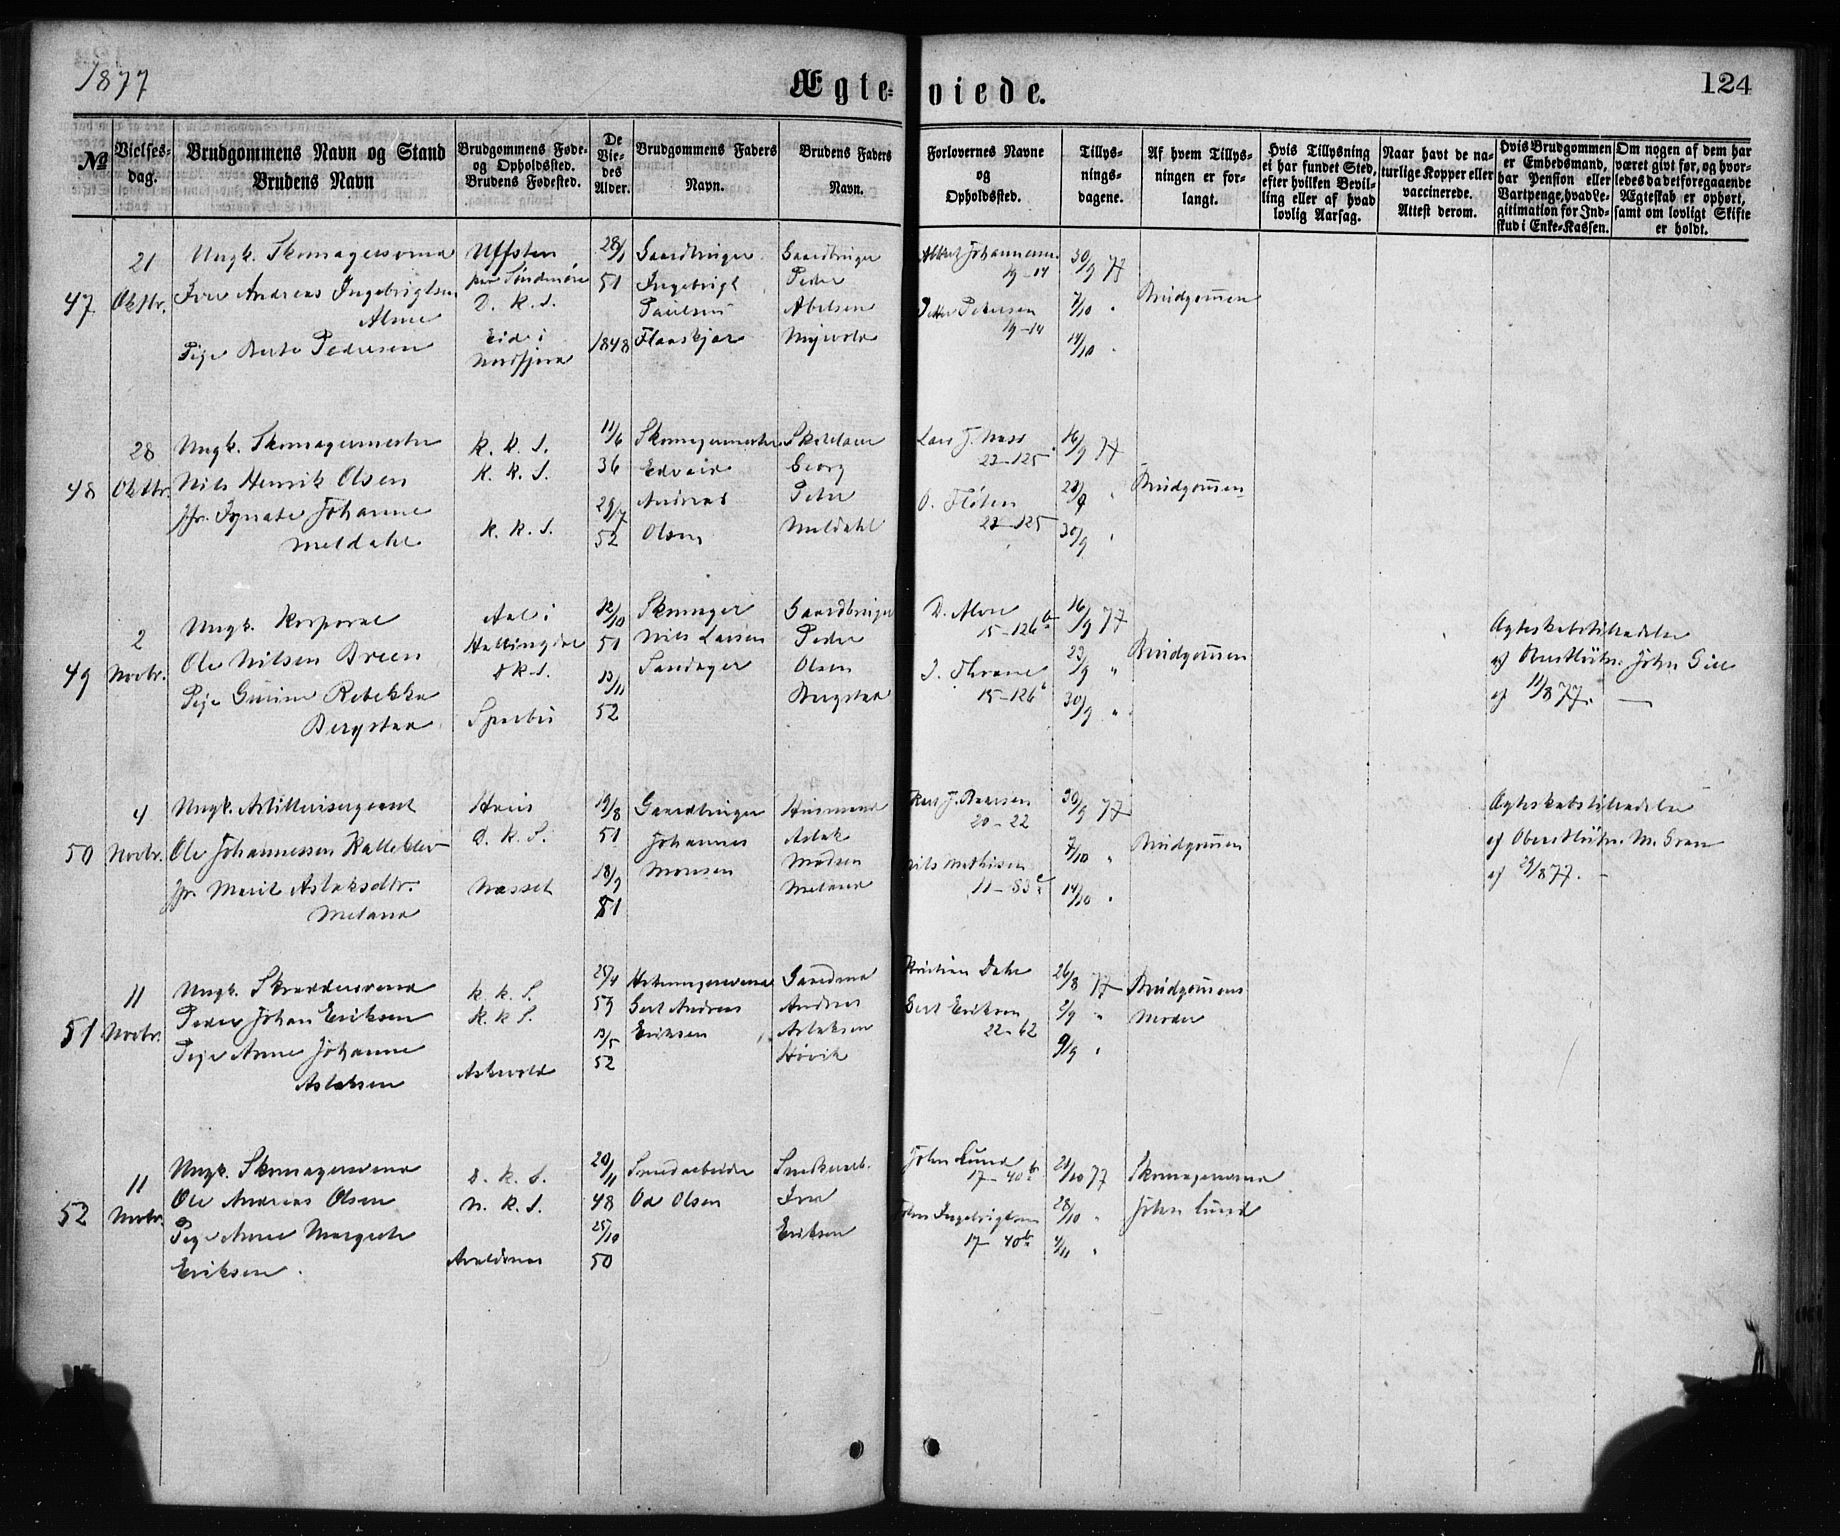 1877
Ægte-viede.
124
No
Vielses-dag.
Brudgommens Navn og Stand
Brudens Navn
Brudgommens Føde- og Opholdssted.
Brudens Fødested.
De Viedes Alder.
Brudgommens Faders Navn.
Brudens Faders Navn.
Forlovernes Navne og Opholdssted.
Tillysningsdagene.
Af hvem Tillysningen er forlangt.
Hvis Tillysning ei har fundet Sted, efter hvilken Bevilling eller af hvad lovlig Aarsag.
Naar havt de naturlige Kopper eller vaccinerede. Attest derom.
Hvis Brudgommen er Embedsmand, har Pension eller Vartpenge, hvad Legitimation for Indskud i Enke-Kassen.
Om nogen af dem har været givt før, og hvorledes da det foregaaende Ægteskab er ophørt, samt om lovligt Skifte er holdt.
47
21 Oktbr.
Ungk. Skomagersvend
Iver Andreas Ingebrigtsen
Alme
Pige Berte Pedersen
D. K. S.
Eid i
Nordfjord
28/1
51
1848
Gaardbruger
Ingebrigt
Paulsen
Gaardbruger
Peder
Abelsen
Myrvold
Albert Johannesen
19-14
Peder Pedersen
19-14
30/9 77
7/10 "
14/10 "
Brudgommen
48
28 Oktbr.
Ungk. Skomagermester
Nils Henrik Olsen
Jfr. Johanne
Meldahl
K. K. S.
K. K. S.
K. K. S.
11/6
36
29/7
52
Skomagermester
Edvard
Andreas
Olsen
Georg
Peter
Meldahl
Lars J. Næss
22-125
O. Fløten
22-125
16/9 77
23/9 "
30/9 "
Brudgommen
49
2 Novbr.
Ungk. Korporal
Ole Nilsen Breen
Pige Rebekka
Bergstad
Aal i
Hallingdal
D K S.
Sparbu
12/10
51
13/11
52
Skomager
Nils Larsen
Gaardbruger
Peder
Olsen
Bergstad
15-126 b
J. Thrane
15-126 b
16/9 77
23/9 "
30/9 "
Brudgommen
Ægteskabstilladelse
af Oberstløitn. John Gill
af 11/8 77. —
50
4 Novbr.
Ungk. Artillerisergeant
Ole Johannessen
Jfr. Marit Aslaksdtr.
Meland
D. K. S.
Næsset
19/8
51
18/9
51
Gaardbruger
Johannes
Monsen
Husmand
Aslak
Madsen
Meland
20-22
Nils Mathisen
11-83
30/9 77
7/10 "
14/10 "
Brudgommen
Ægteskabstilladelse
af Oberstløitn. M. Gran
af 29/8 77. —
51
11 Novbr.
Ungk. Skreddersvend
Peder Johan Eriksen
Pige Anne Johanne
Aslaksen
K. K. S.
K. K. S.
Askvold
25/4
59
13/5
52
Gert Andreas
Eriksen
Gaardmd
Andreas
Aslaksen
Høvik
Kristian Dahl
Gert Eriksen
22-62
26/8 77
2/9 "
9/9 "
Brudgommens
Moder
52
11 Novbr.
Ungk. Skomagersvend
Ole Andreas Olsen
Pige Anne Margrete
Eriksen.
D. K. S.
N. K. S.
Avaldsnes
20/11
48
25/10
50
Smedarbeider
Od Olsen
Snedkerarb.
Iver
Eriksen
John Lund
17-40 b
John Ingebrigtsen
17-40 b
21/10 77
28/10 "
4/11 "
Skomagersvend
John Lund